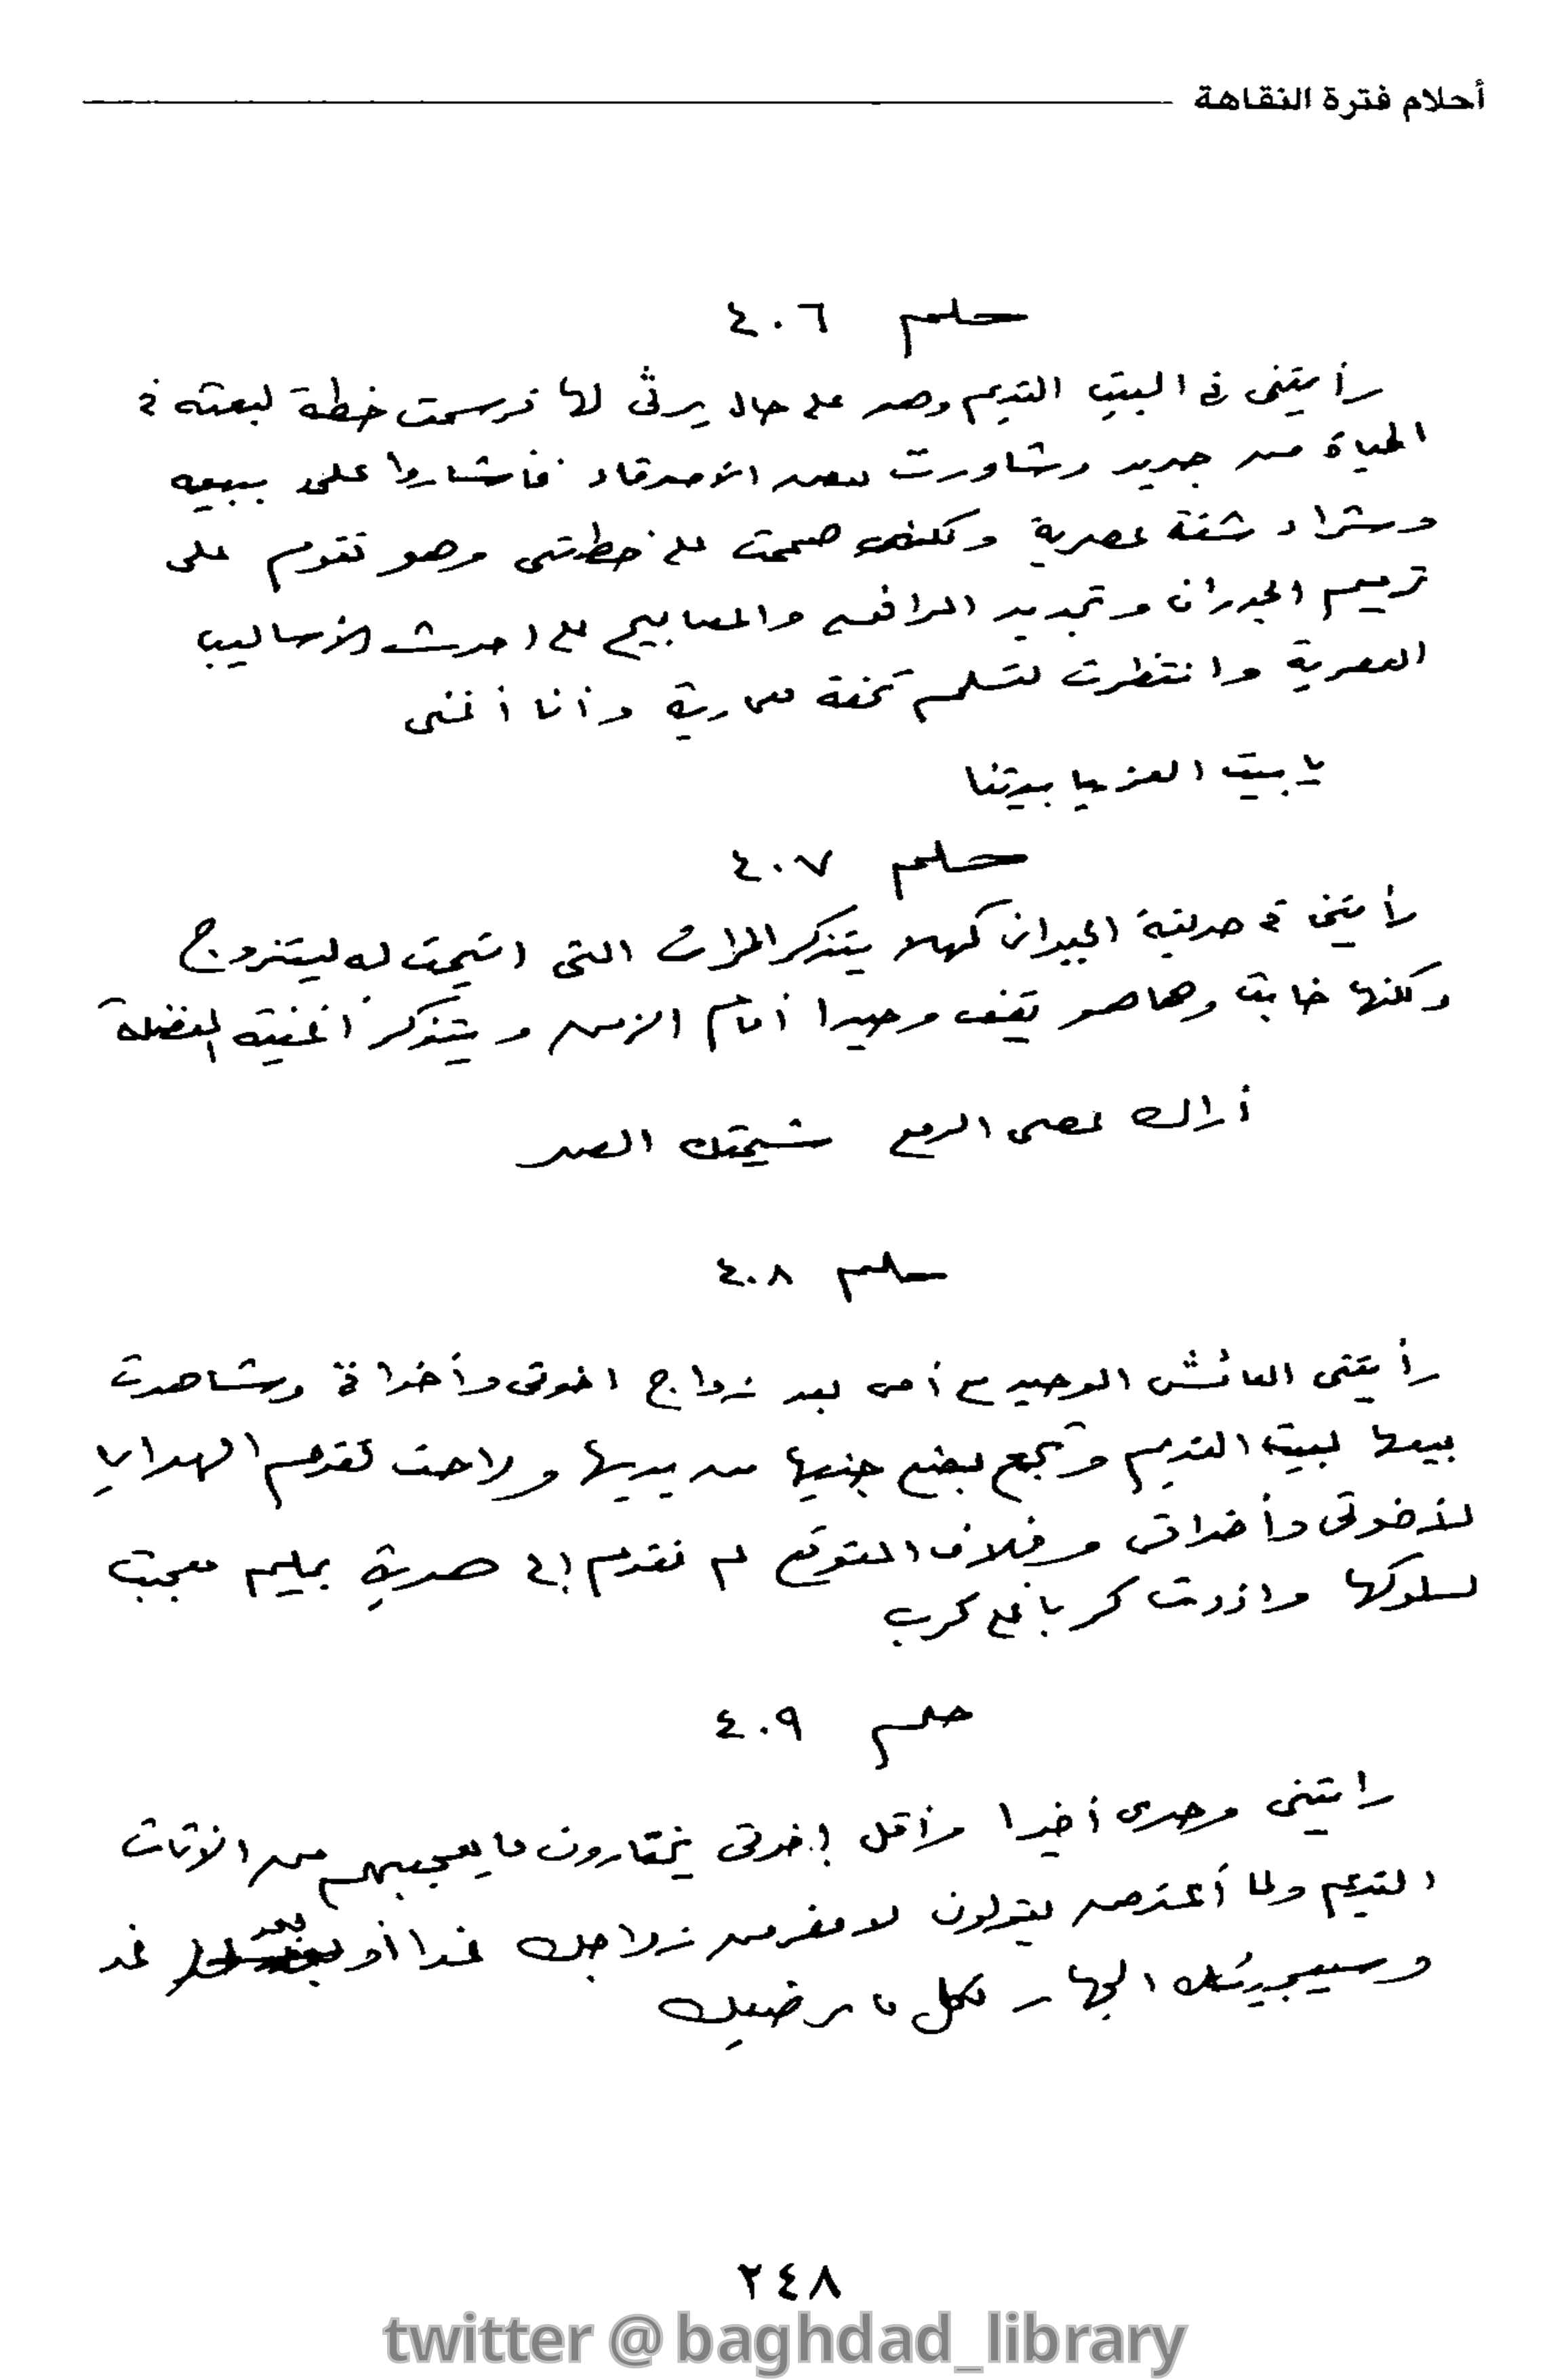 أحلام فترة النقاهة
حلم ٤٠٦
رأيتنى فى البيت القديم وهو على حال يرثى لها فرسمت خطة لبعثه فى
الحياة من جديد وشاورت بعض الأصدقاء فأشاروا على ببيعه
وشراء شقة عصرية ولكننى صممت على خطتى وهو تقوم على
ترميم الجدران وتجديد المرافق والمصابيح على احدث الأساليب
العصرية وانتظرت لتسلم تحفة معمارية وأنا أغنى
يا بيت العز يا بيتنا
حلم ٤٠٧
رأيتنى فى حديقة الجيران كهلا يتذكر المرات التى اتيحت له ليتزوج
ولكنها خابت وها هو يقف وحيدا أمام الزمن ويتذكر أغنيته المفضلة
أراك عصى الدمع شيمتك الصبر
حلم ٤٠٨
رأيتنى العائش الوحيد مع أمى بعد زواج اخوتى وأخواتى وشاهدت
بيعها لبيت القديم وتجمع بضع جنيها من يديها وراحت تقدم الهدايا
لأخوتى وأخواتى وبخلاف المتوقع لم تقدم إلى هدية بمليم فعجبت
لسلوكها وازددت كربا على كرب
حلم ٤٠٩
رايتنى وحدى أخيرا وأقبل إخوتى يختارون ما يعجبهم من الاثاث
القديم ولما أعترض يقولون لا مفر من زواجك غدا أو بعد غد
وسيجيئك الجهاز بكل ما يرضيك
٢٤٨
twitter @baghdad_library